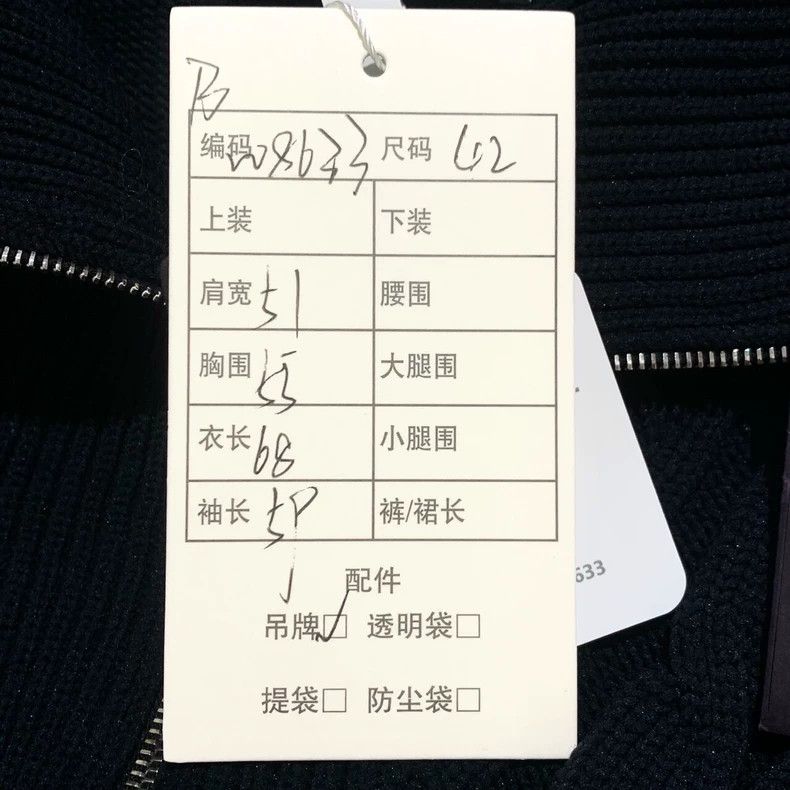 B
编码 008633 尺码 42
上装 下装
肩宽 51 腰围
胸围 55 大腿围
衣长 68 小腿围
袖长 59 裤/裙长
配件
吊牌☑ 透明袋□
提袋□ 防尘袋□
633